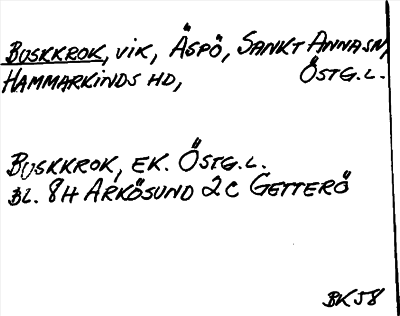 BUSKKROK, VIK, ÄSPÖ, SANKT ANNA SN,
HAMMARKINDS HD, ÖSTG.L.
BUSKKROK, EK. ÖSTG.L.
BL. 8H ARKÖSUND 2C GETTERÖ
BK58